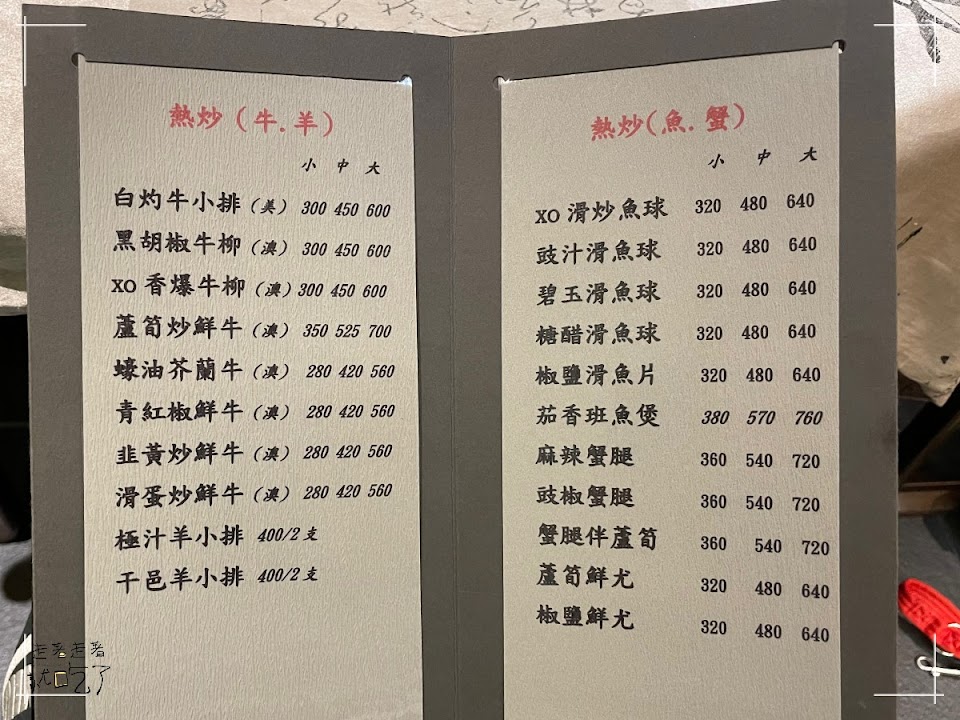 熱炒（牛.羊）
小 中 大
白灼牛小排（美） 300 450 600
黑胡椒牛柳（澳） 300 450 600
XO 香爆牛柳（澳） 300 450 600
蘆筍炒鮮牛（澳） 350 525 700
蠔油芥蘭牛（澳） 280 420 560
青紅椒鮮牛（澳） 280 420 560
韭黃炒鮮牛（澳） 280 420 560
滑蛋炒鮮牛（澳） 280 420 560
極汁羊小排 400/2支
干邑羊小排 400/2支
熱炒(魚.蟹)
小 中 大
XO 滑炒魚球 320 480 640
豉汁滑魚球 320 480 640
碧玉滑魚球 320 480 640
糖醋滑魚球 320 480 640
椒鹽滑魚片 320 480 640
茄香班魚煲 380 570 760
麻辣蟹腿 360 540 720
豉椒蟹腿 360 540 720
蟹腿伴蘆筍 360 540 720
蘆筍鮮尤 320 480 640
椒鹽鮮尤 320 480 640
走著走著
就口吃了